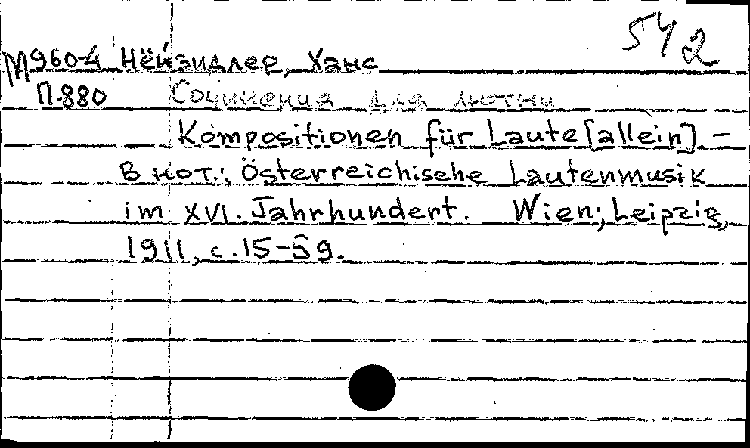 542
М960-4 Нёйзидлер, Ханс
П-880 Сочинения для лютни
Kompositionen für Laute [allein]. –
В нот.: Österreichische Lautenmusik
im XVI. Jahrhundert. Wien; Leipzig,
1911, с. 15–59.